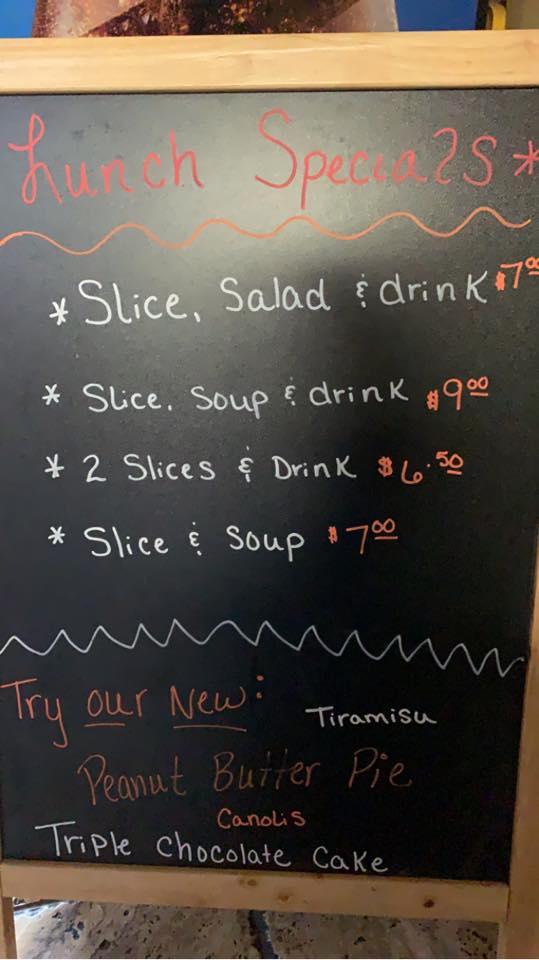 Lunch Specials *
* Slice, Salad & drink $7.00
* Slice, Soup & drink $9.00
* 2 Slices & Drink $6.50
* Slice & Soup $7.00
Try our New:
Tiramisu
Peanut Butter Pie
Canolis
Triple Chocolate Cake